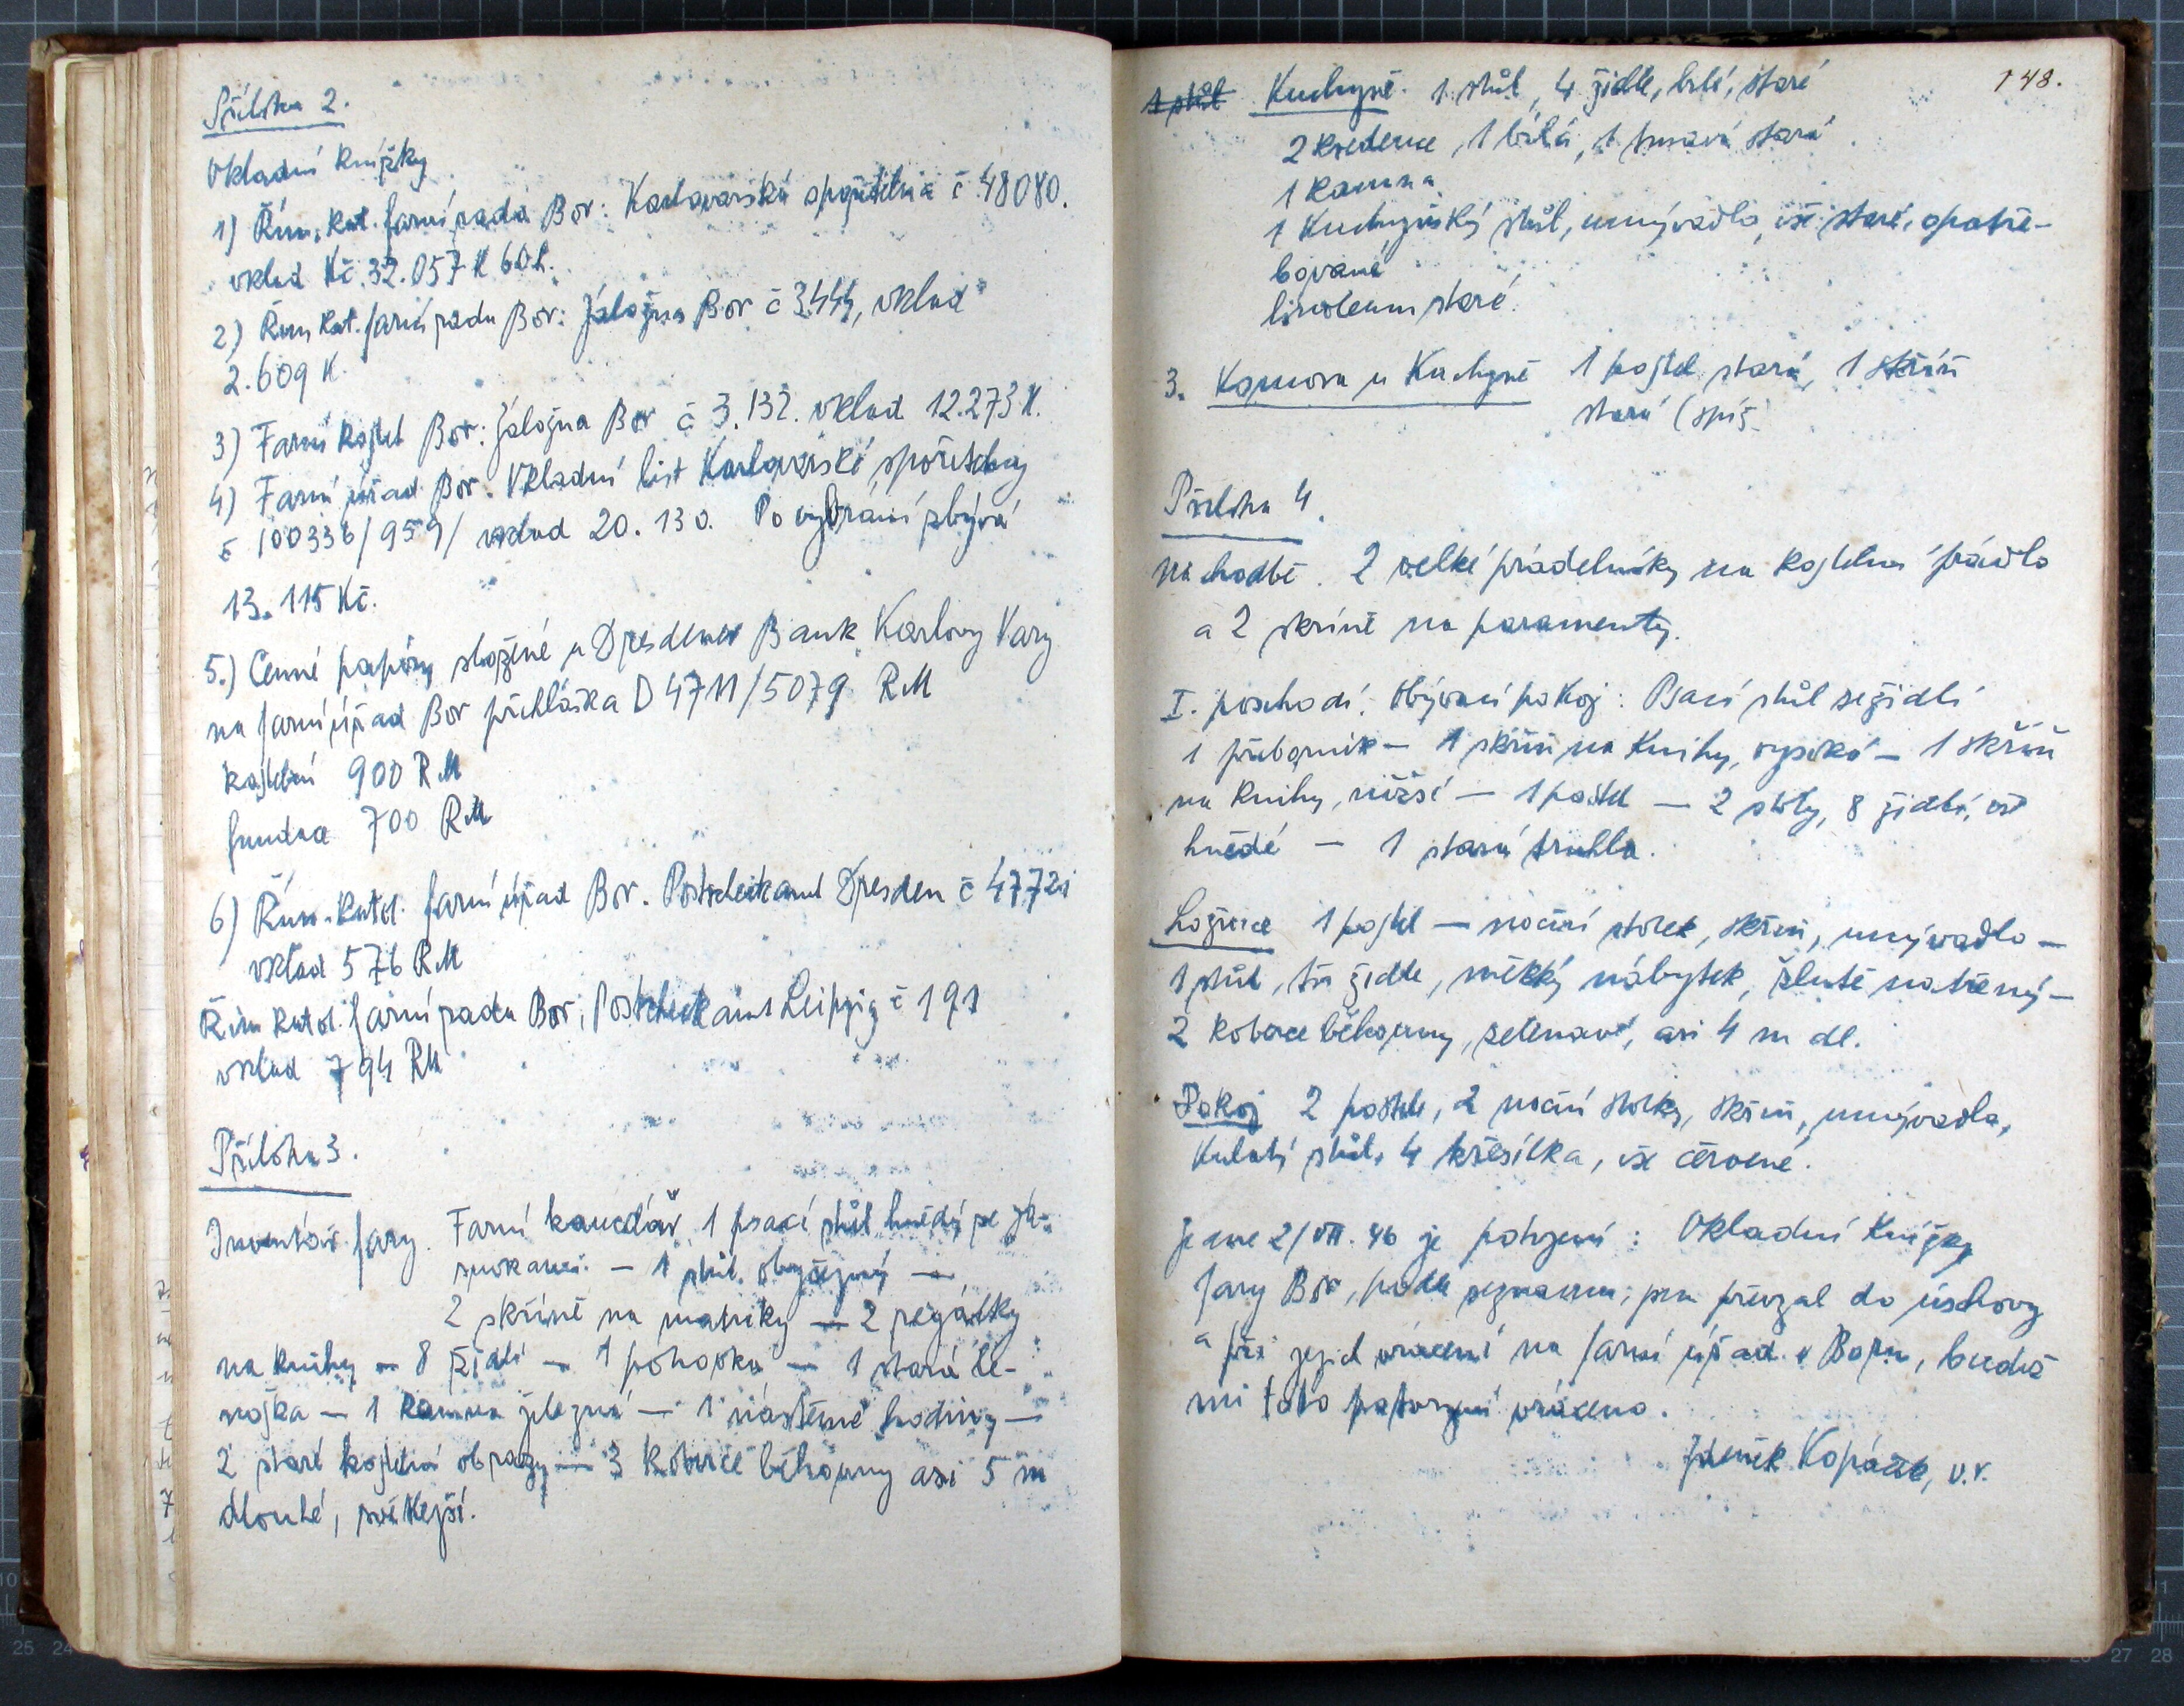 Příloha 2.
Vkladní knížky
1) Řím. kat. farní rada Bor: Karlovarská spořitelna č 48080.
vklad Kč. 32.057 K 60 h.
2) Řím kat. farní rada Bor: Záložna Bor č 3444, vklad
2.609 K.
3) Farní kostel Bor: Záložna Bor č 3.132. vklad 12.273 K.
4) Farní úřad Bor. Vkladní list Karlovarské spořitelny
č 100336/959/ vklad 20.130. Po vybrání zbývá
13.115 Kč.
5.) Cenné papíry složené u Dresdener Bank Karlovy Vary
na farní úřad Bor přihláška D 4711/5079 RM
kostelní 900 RM
fundace 700 RM
6) Řím.-katol. farní úřad Bor. Postscheckamt Dresden č 4772
vklad 576 RM
Řím katol. farní rada Bor; Postscheckamt Leipzig č 191
vklad 794 RM
Příloha 3.
Inventář fary. Farní kancelář 1 psací stůl hnědý se zá-
suvkami. — 1 stůl obyčejný —
2 skříně na matriky — 2 regálky
na knihy — 8 židlí — 1 pohovka — 1 stará le-
noška — 1 kamna železná — 1 nástěnné hodiny —
2 staré kostelní obrazy — 3 koberce běhouny asi 5 m
dlouhé, světlejší.
148.
1 stůl Kuchyně. 1 stůl, 4 židle, bílé, staré
2 kredence, 1 bílá, 1 tmavá stará
1 kamna
1 kuchyňský stůl, umývadlo, vše staré, opotře-
bované
linoleum staré.
3. Komora u kuchyně 1 postel stará, 1 skříň
stará (spíž
Příloha 4.
Na chodbě. 2 velké prádelníky na kostelní prádlo
a 2 skříně na paramenty.
I. poschodí. Obývací pokoj: Psací stůl se židlí
1 příborník — 1 skříň na knihy, vysoká — 1 skříň
na knihy, nižší — 1 postel — 2 stoly, 8 židlí, vše
hnědé — 1 stará truhla.
Ložnice 1 postel — noční stolek, skříň, umývadlo —
1 stůl, tři židle, měkký nábytek, žlutě natřený —
2 koberce běhouny, zelenavé, asi 4 m dl.
Pokoj 2 postele, 2 noční stolky, skříň, umývadla,
kulatý stůl, 4 křesílka, vše červené.
Ze dne 2/VII. 46 je potvrzení: Vkladní knížky
fary Bor, podle seznamu, jsem převzal do úschovy
a při jejich vrácení na farní úřad v Boru, budiž
mi toto potvrzení vráceno.
Zdeněk Kopáček, v.r.